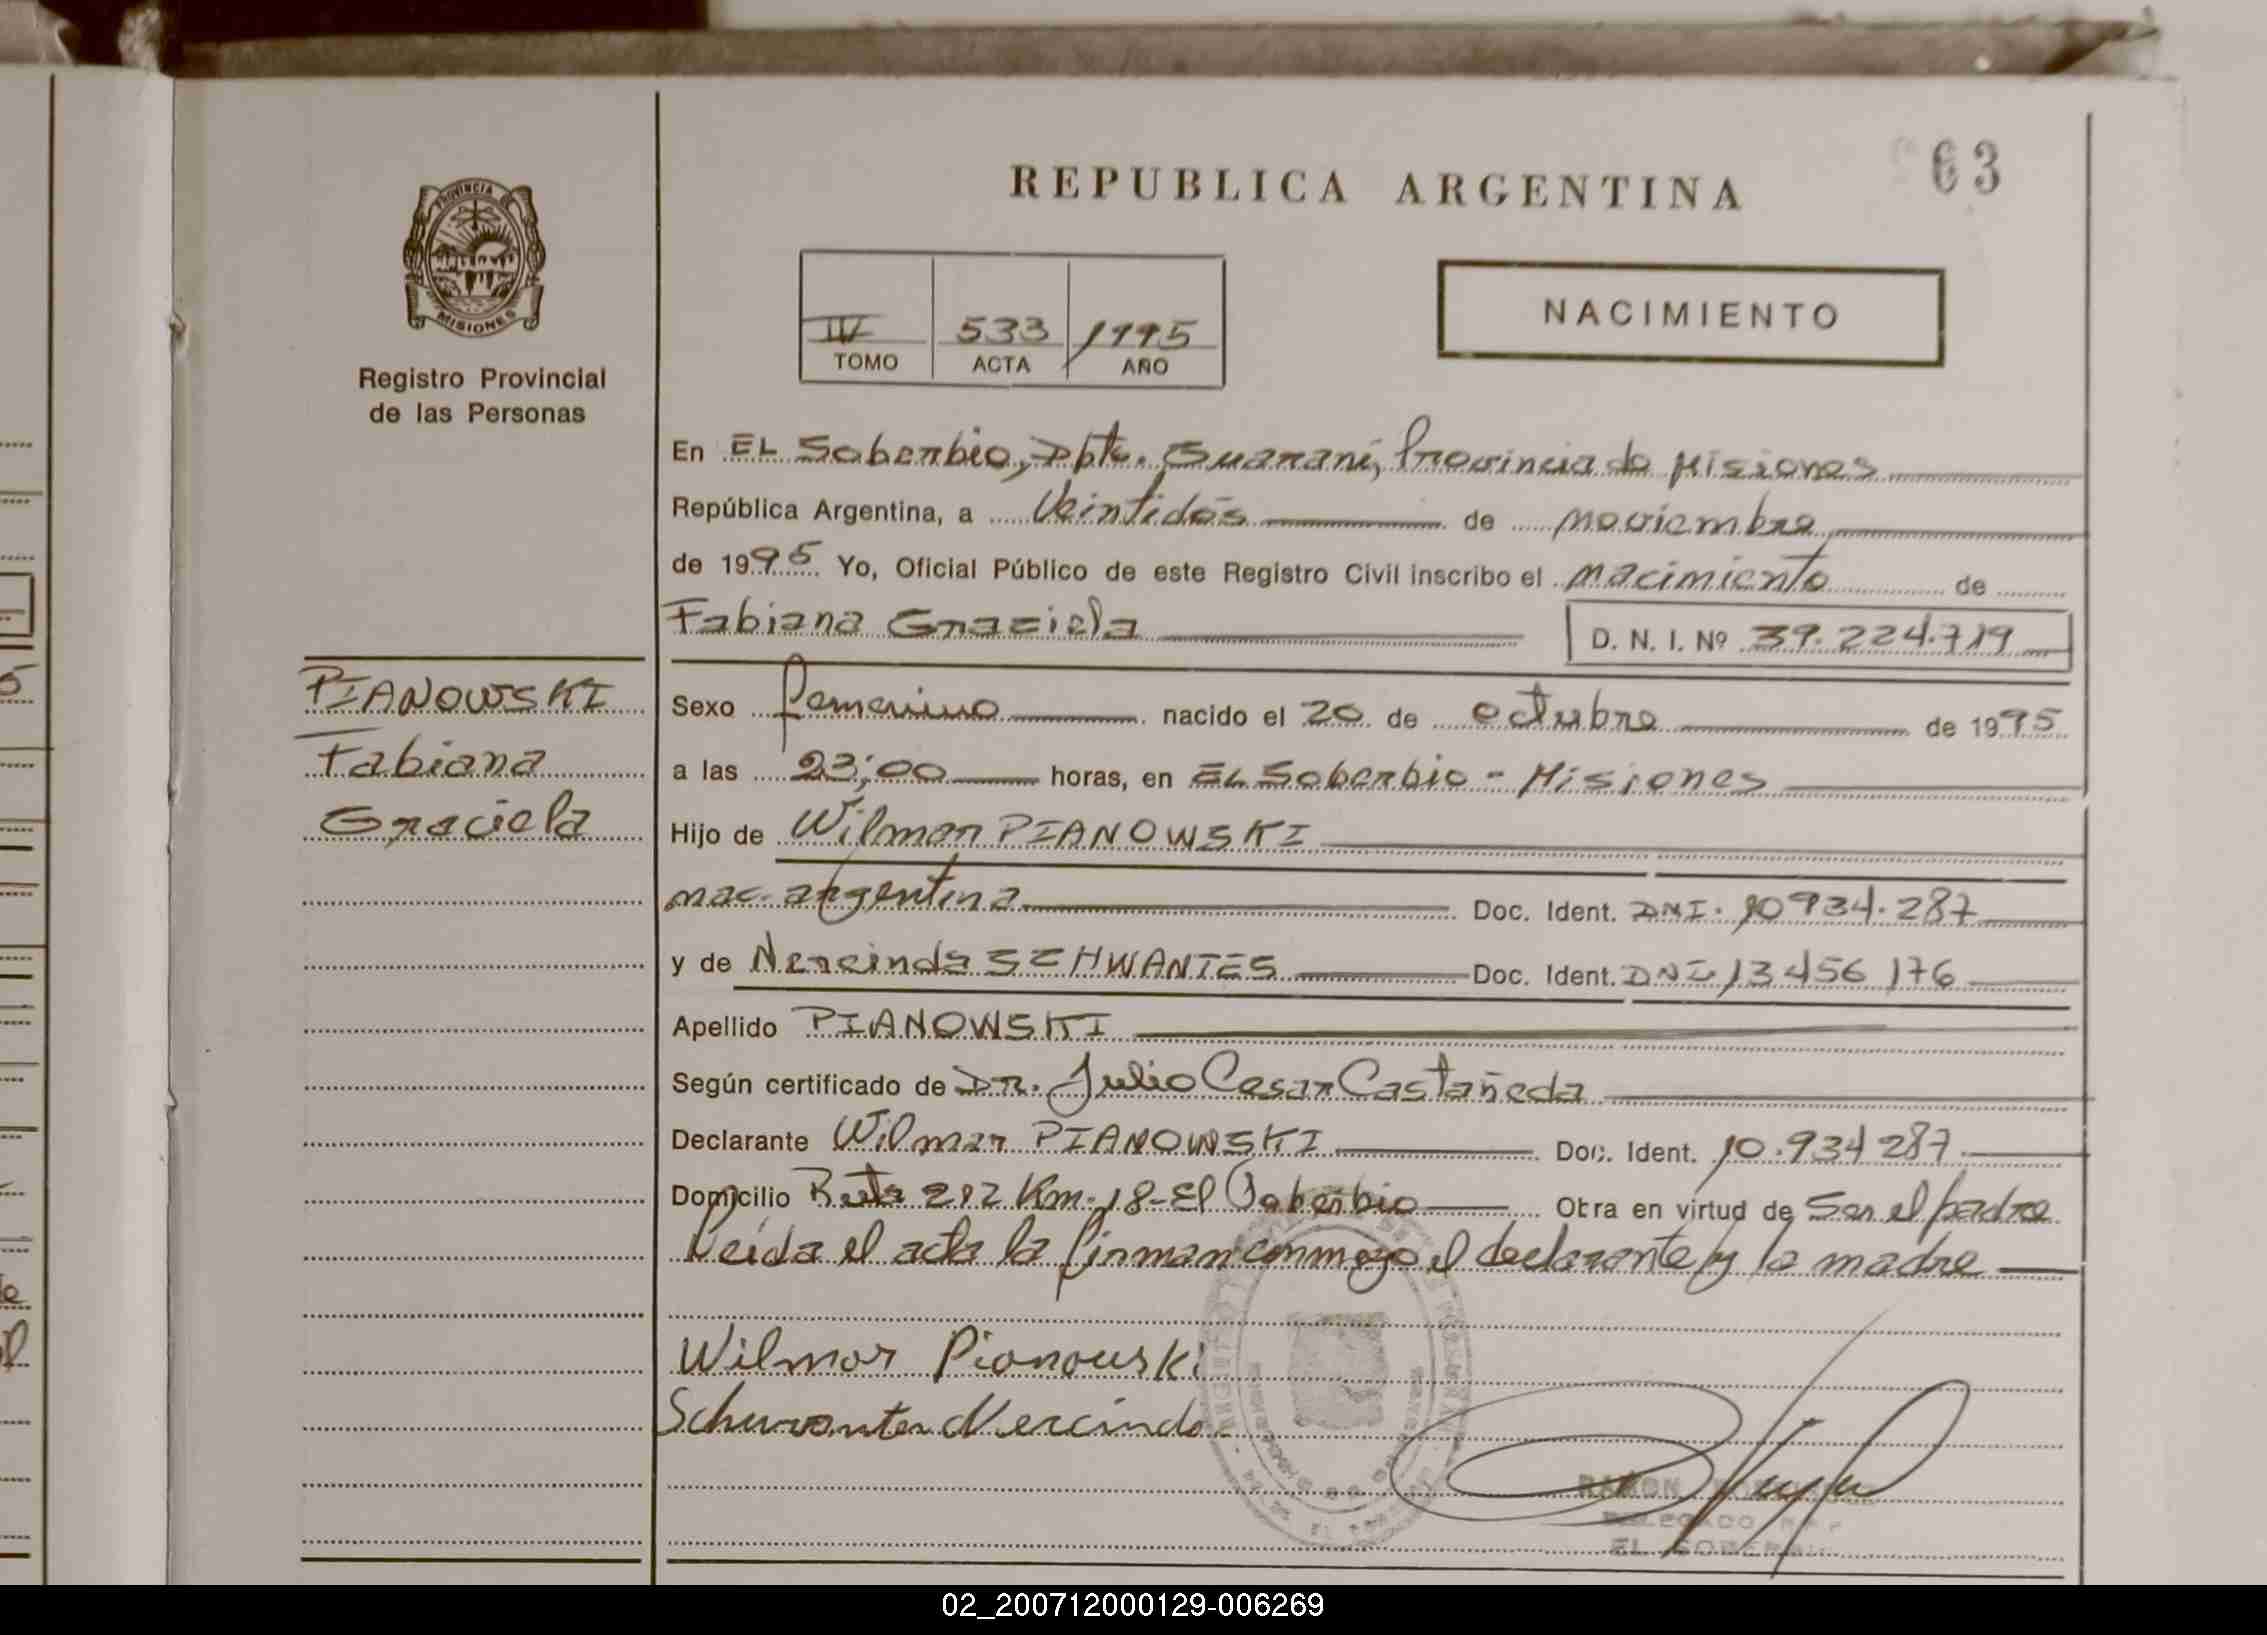 REPUBLICA ARGENTINA
63
PROVINCIA DE
MISIONES
Registro Provincial
de las Personas
IV 533 1995
TOMO ACTA AÑO
NACIMIENTO
En EL Soberbio, Dpto. Guaraní, Provincia de Misiones
República Argentina, a Veintidós de noviembre
de 1995 Yo, Oficial Público de este Registro Civil inscribo el nacimiento de
Fabiana Graciela D. N. I. Nº 39.224.719
PIANOWSKI
Fabiana
Graciela
Sexo femenino nacido el 20 de octubre de 1995
a las 23:00 horas, en EL Soberbio - Misiones
Hijo de Wilmar PIANOWSKI
nac. argentina Doc. Ident. DNI. 10934.287
y de Nercinda SCHWANTES Doc. Ident. DNI 13456176
Apellido PIANOWSKI
Según certificado de DR. Julio Cesar Castañeda
Declarante Wilmar PIANOWSKI Doc. Ident. 10.934287
Domicilio Ruta 212 Km. 18-El Soberbio Obra en virtud de Ser el padre
Leída el acta la firman conmigo el declarante y la madre
Wilmar Pianowski
Schwantes Nercinda
RAMON
DELEGADO
EL SOBERBIO
02_200712000129-006269